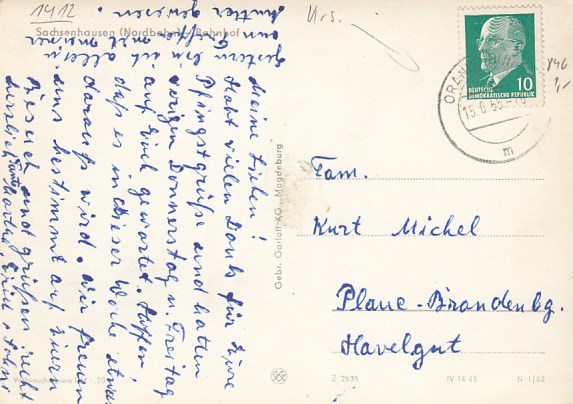 1412
Urs.
Sachsenhausen (Nordbahn) Bahnhof
Meine Lieben!
Habt vielen Dank für Eure
Pfingstgrüße und hatten
vorigen Donnerstag u Freitag
auf Euch gewartet. Hoffen
daß es in dieser Woche etwas
daraus wird. Wir freuen
uns bestimmt auf Euern
Besuch und grüßen recht
herzlich Erich
gestern bin ich allein
mit meiner
Mutter gewesen.
Gebr. Garloff KG, Magdeburg
DEUTSCHE
DEMOKRATISCHE REPUBLIK
10
ORAN
15.6.65
m
Fam.
Kurt Michel
Plaue-Brandenbg.
Havelgut
Z 2635
IV 14 45
N 1/62